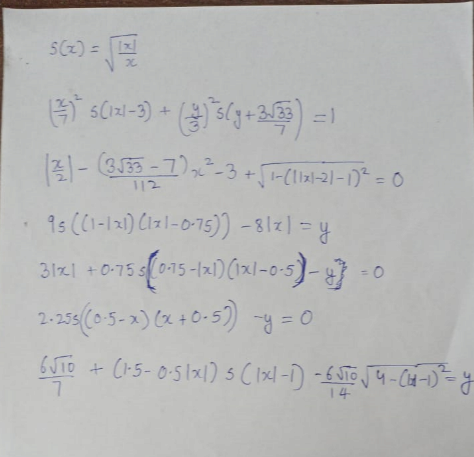 s(x) = √(|x|/x)
(x/7)² s(|x|-3) + (y/3)² s(y + 3√33/7) = 1
|x/2| - ((3√33 - 7)/112) x² - 3 + √(1-(||x|-2|-1)²) = 0
9s((1-|x|)(|x|-0.75)) - 8|x| = y
3|x| + 0.75s{(0.75-|x|)(|x|-0.5) - y} = 0
2.25s((0.5-x)(x+0.5)) - y = 0
6√10/7 + (1.5-0.5|x|) s(|x|-1) - 6√10/14 √(4-(|x|-1)²) = y